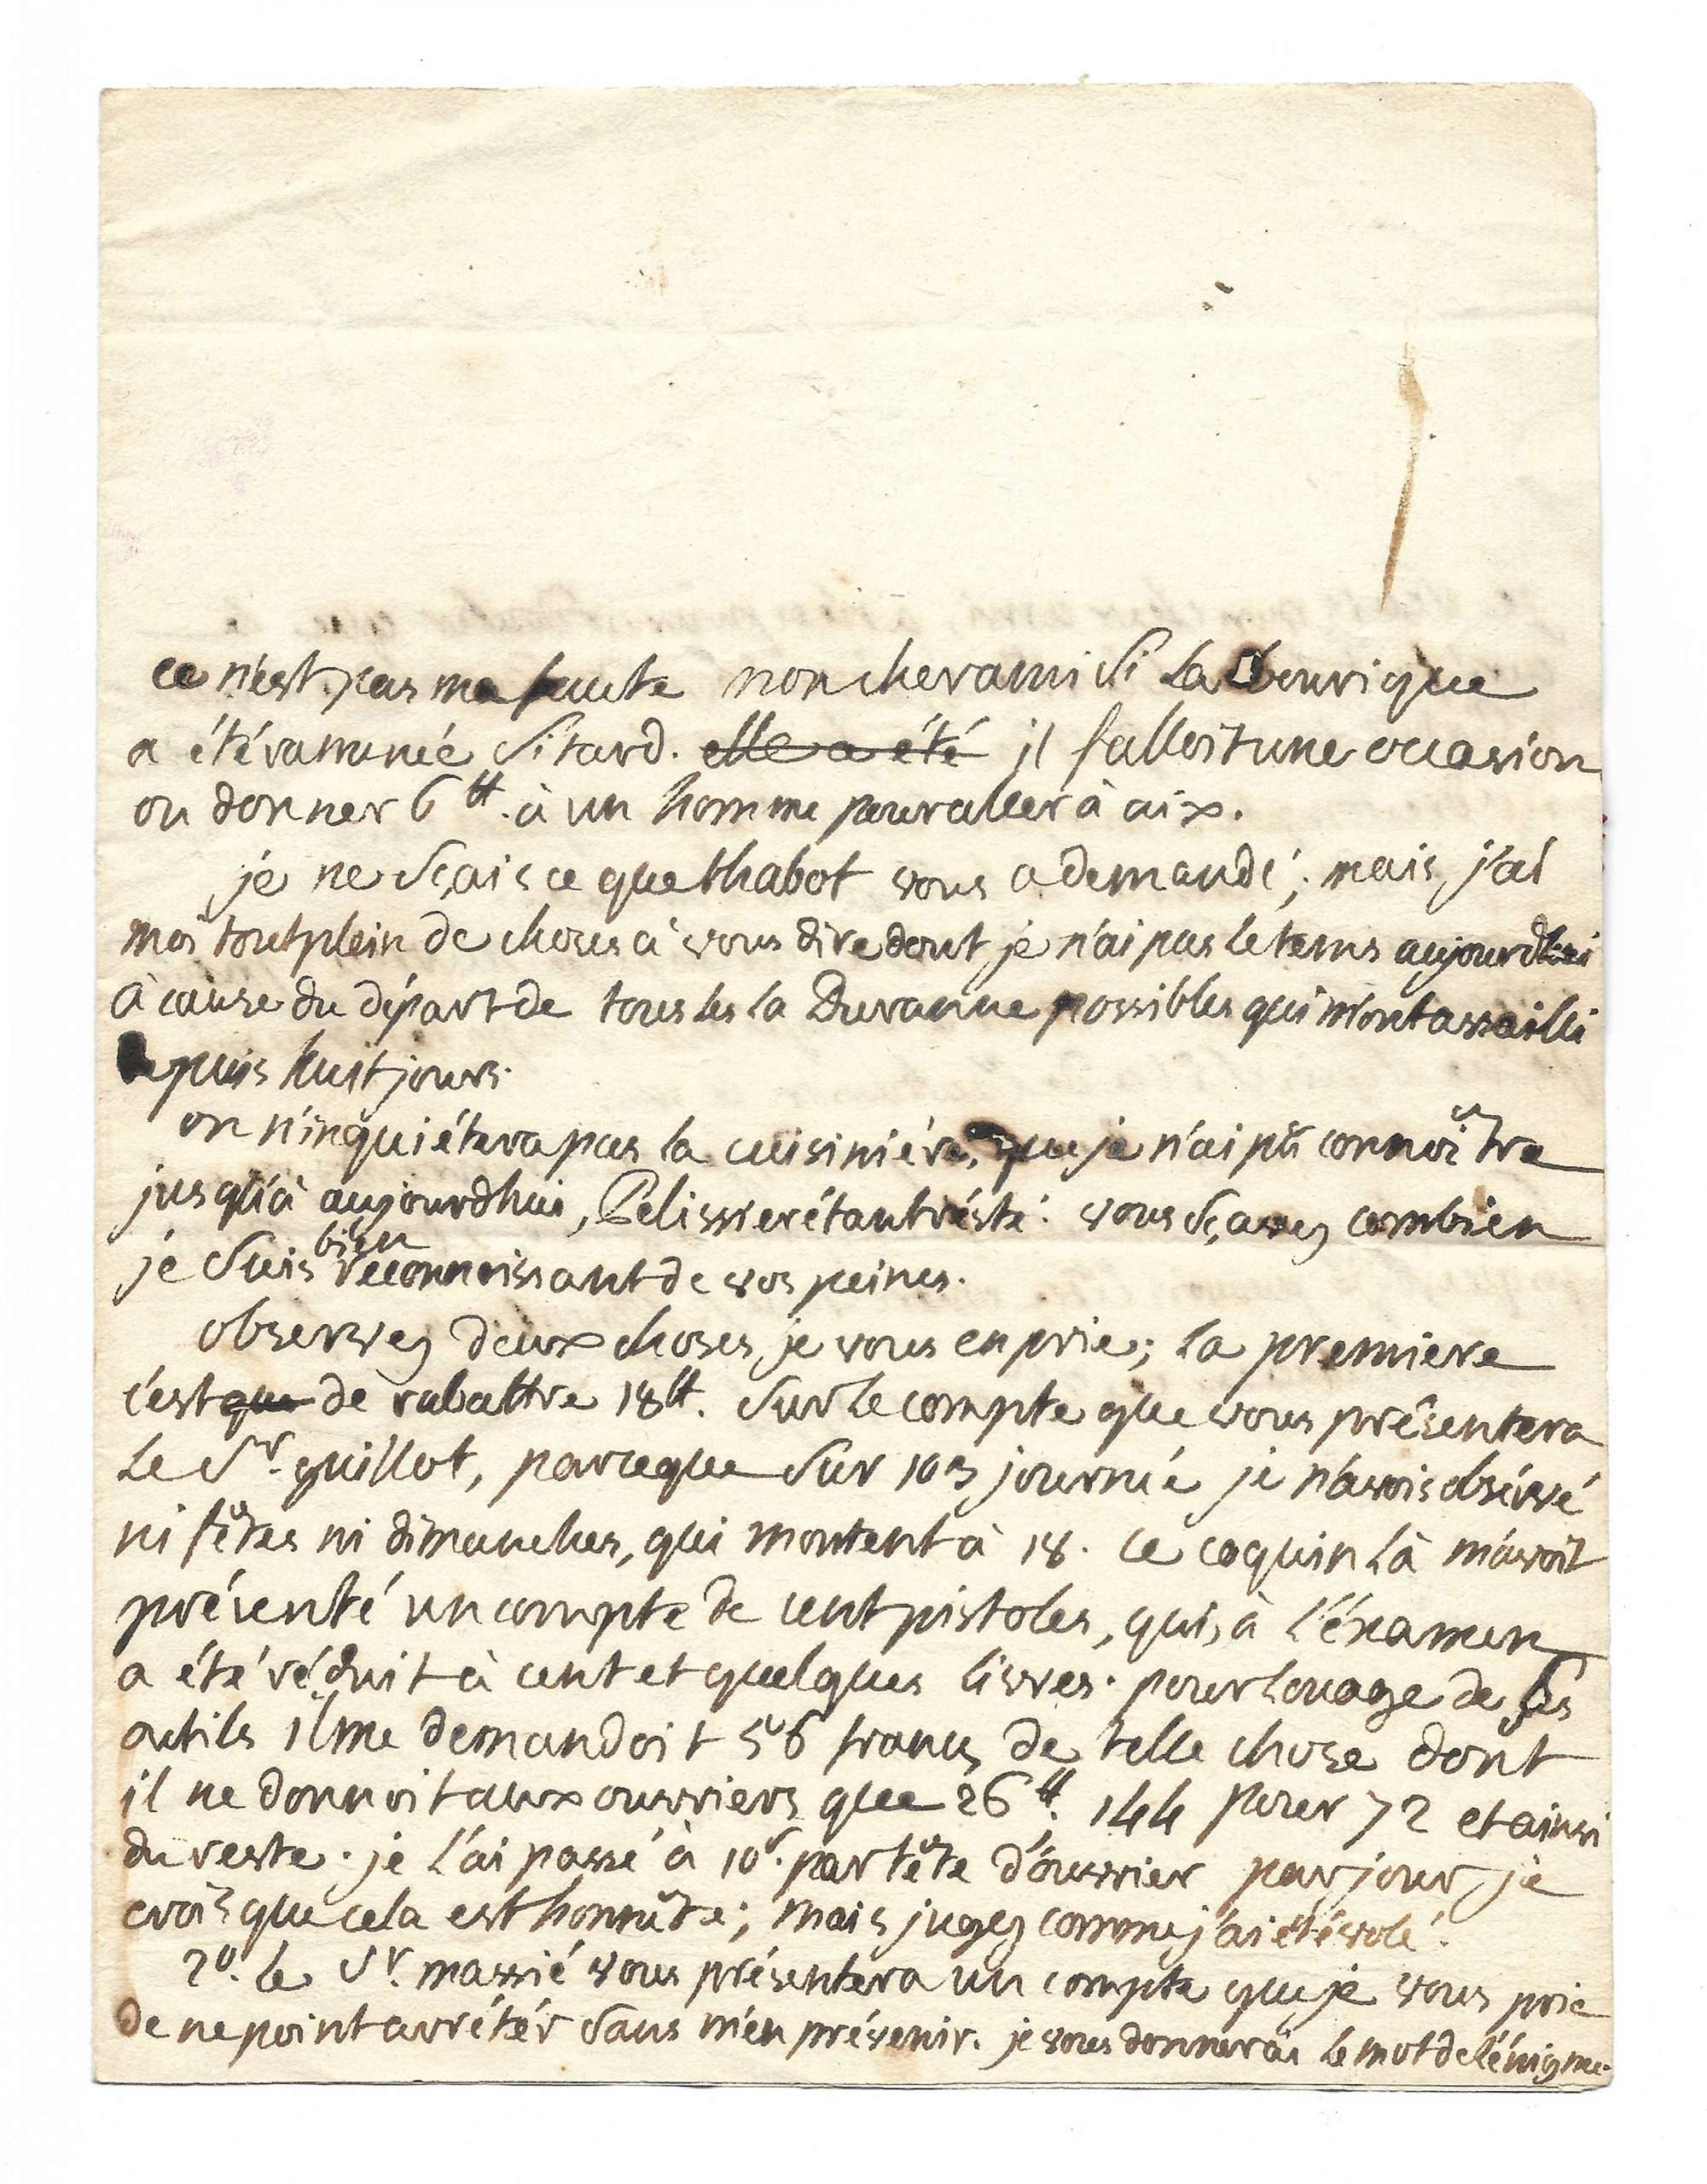 ce n'est pas ma faute mon cher ami si la bourique
a été rammnée si tard. elle a été il falloit une occasion
ou donner 6 ₶. à un homme pour aller à aix.
je ne sçais ce que chabot vous a demandé; mais j'ai
moi tout plein de choses à vous dire dont je n'ai pas le tems aujourdhui
à cause du départ de tous les la Duranne possibles qui m'ont assailli
depuis huit jours.
on n'inquiétera pas la cuisiniére, que je n'ai pû connoître
jusqu'à aujourdhui, Pelissier étant résté. vous sçavez combien
je suis bien reconnoissant de vos peines.
observez deux choses je vous en prie; la premiere
c'est que de rabattre 18₶. sur le compte que vous présentera
le Sr. guillot, parceque sur 103 journée je n'avois observé
ni fêtes ni dimanches, qui montent à 18. ce coquin là m'avoit
présenté un compte de cent pistoles, qui, à l'éxamen
a été réduit à cent et quelques livres. pour louage de ses
outils il me demandoit 56 francs de telle chose dont
il ne donnoit aux ouvriers que 26₶. 144 pour 72 et ainsi
du reste. je l'ai passé à 10s. par tête d'ouvrier par jour, je
crois que cela est honnête; mais jugez comme j'ai été volé.
2º. le Sr. massié vous présentera un compte que je vous prie
de ne point arrétér sans m'en prévenir. je vous donnerai le mot de l'énigme.